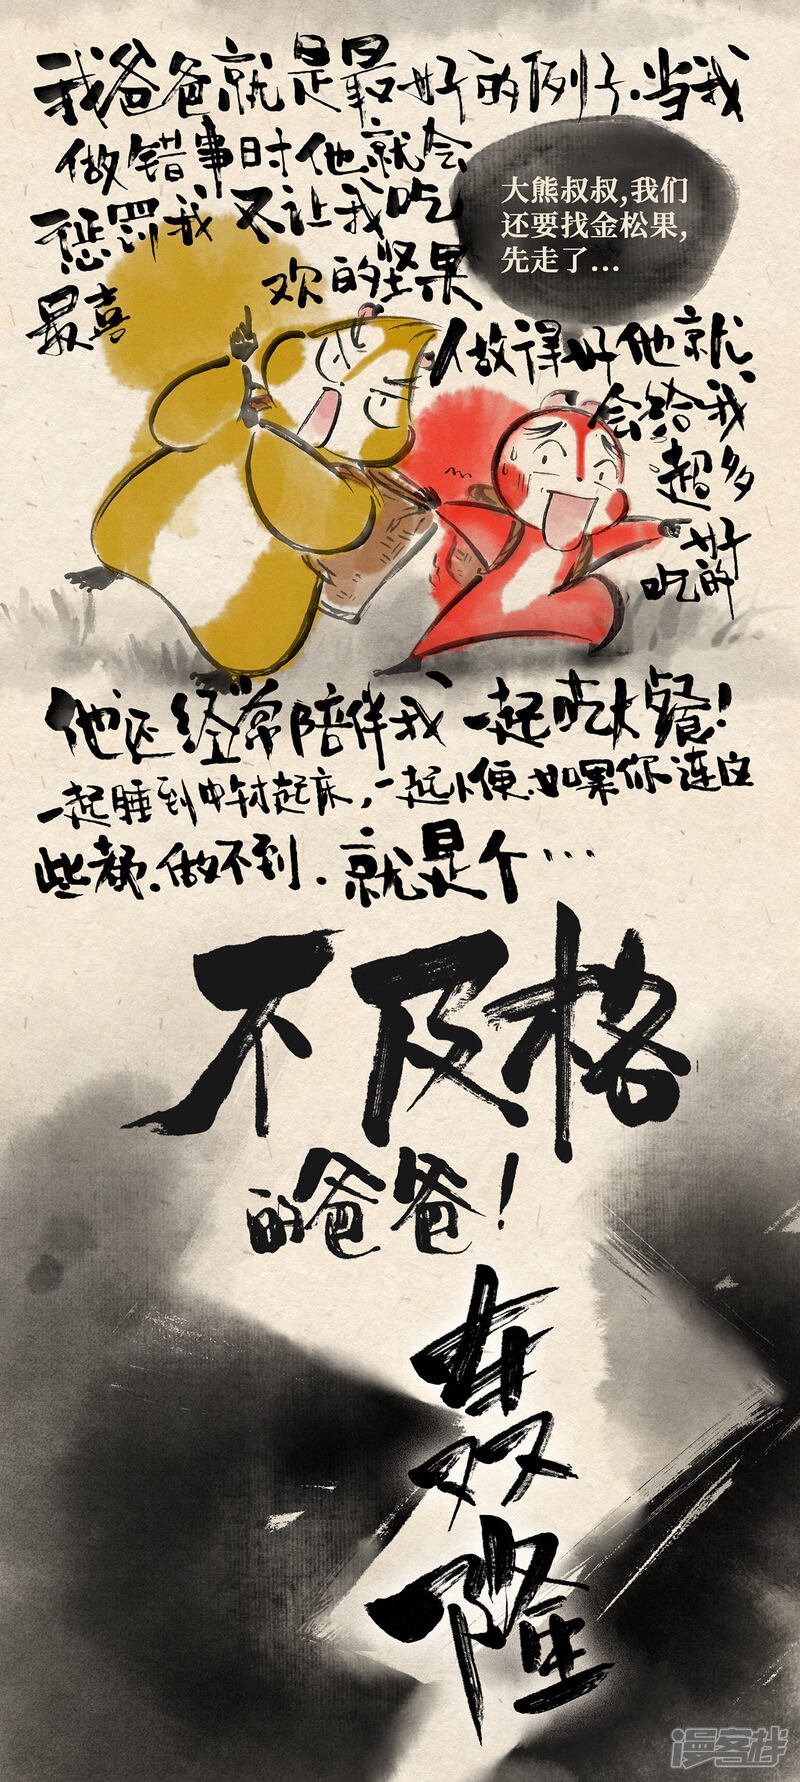 我爸爸就是最好的例子.当我
做错事时他就会
惩罚我 不让我吃
最喜
欢的坚果
大熊叔叔,我们
还要找金松果,
先走了…
做得好他就
会给我
超多
好
吃的
他还经常陪伴我一起吃大餐!
一起睡到中午才起床,一起小便.如果你连这
些都.做不到.就是个…
不及格
的爸爸!
轰
隆
漫客栈